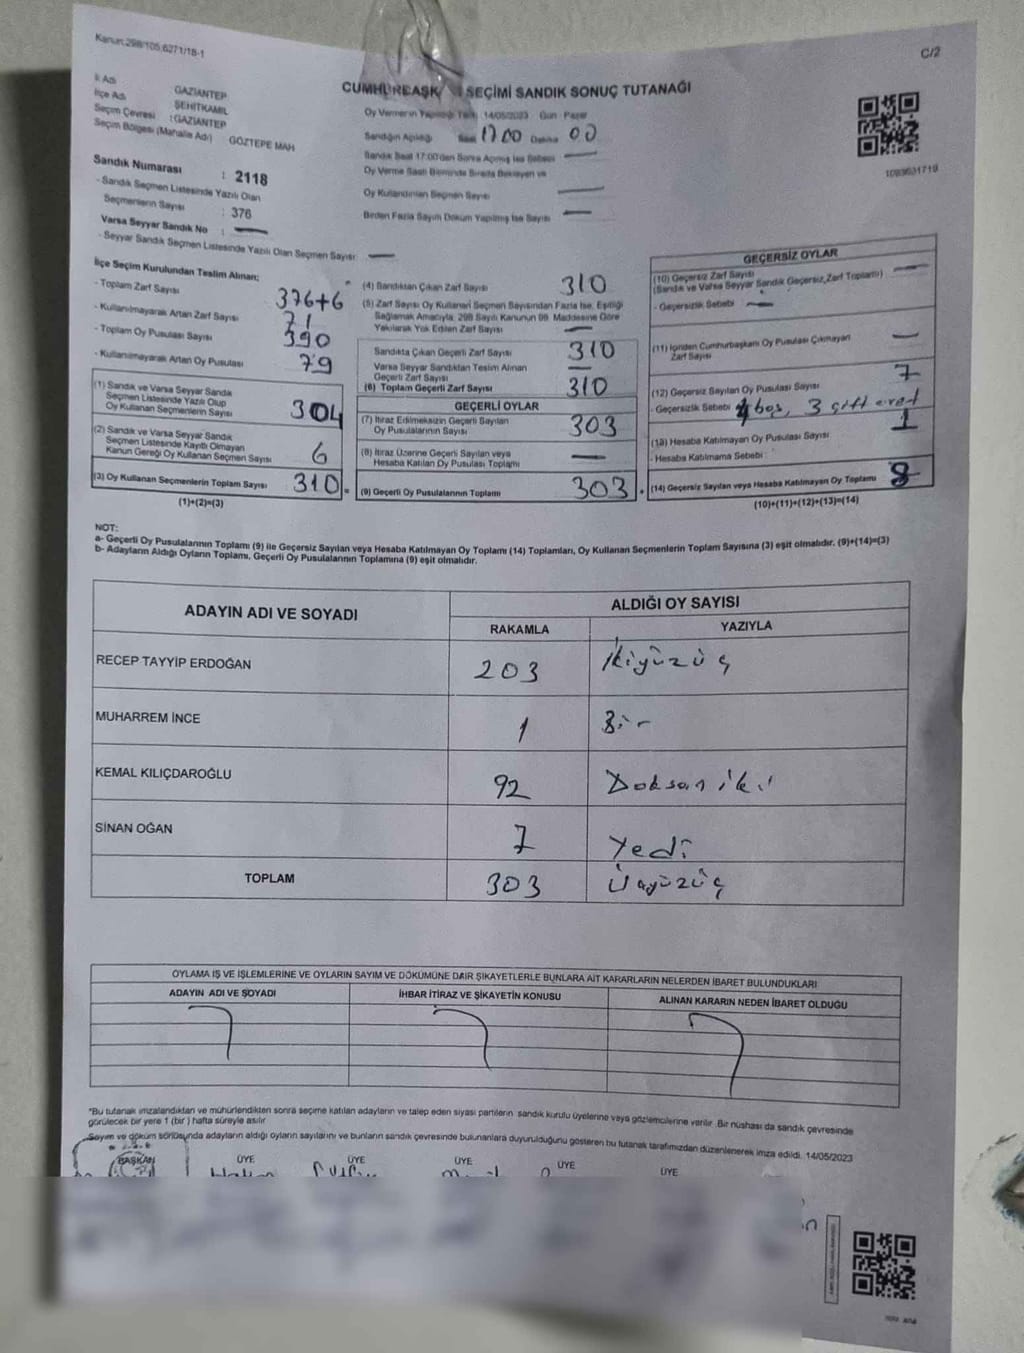 Kanun:298/105,6271/18-1
C/2
CUMHURBAŞK SEÇİMİ SANDIK SONUÇ TUTANAĞI
İl Adı GAZİANTEP
İlçe Adı ŞEHİTKAMİL
Seçim Çevresi :GAZİANTEP
Seçim Bölgesi (Mahalle Adı) GÖZTEPE MAH
Sandık Numarası : 2118
- Sandık Seçmen Listesinde Yazılı Olan
Seçmenlerin Sayısı : 376
Varsa Seyyar Sandık No : —
- Seyyar Sandık Seçmen Listesinde Yazılı Olan Seçmen Sayısı —
Oy Vermenin Yapıldığı Tarih 14/05/2023 Gün Pazar
Sandığın Açıldığı Saat 17.00 Dakika 00
Sandık Saat 17:00'den Sonra Açılmış İse Sebebi —
Oy Verme Saati Bitiminde Sırada Bekleyen ve
Oy Kullandırılan Seçmen Sayısı —
Birden Fazla Sayım Döküm Yapılmış İse Sayısı —
1093631719
İlçe Seçim Kurulundan Teslim Alınan;
- Toplam Zarf Sayısı 376+6
- Kullanılmayarak Artan Zarf Sayısı 71
- Toplam Oy Pusulası Sayısı 390
- Kullanılmayarak Artan Oy Pusulası 79
(1) Sandık ve Varsa Seyyar Sandık
Seçmen Listesinde Yazılı Olup
Oy Kullanan Seçmenlerin Sayısı 304
(2) Sandık ve Varsa Seyyar Sandık
Seçmen Listesinde Kayıtlı Olmayan
Kanun Gereği Oy Kullanan Seçmen Sayısı 6
(3) Oy Kullanan Seçmenlerin Toplam Sayısı 310
(1)+(2)=(3)
(4) Sandıktan Çıkan Zarf Sayısı 310
(5) Zarf Sayısı Oy Kullanan Seçmen Sayısından Fazla İse, Eşitliği
Sağlamak Amacıyla, 298 Sayılı Kanunun 98. Maddesine Göre
Yakılarak Yok Edilen Zarf Sayısı —
Sandıkta Çıkan Geçerli Zarf Sayısı 310
Varsa Seyyar Sandıktan Teslim Alınan
Geçerli Zarf Sayısı —
(6) Toplam Geçerli Zarf Sayısı 310
GEÇERLİ OYLAR
(7) İtiraz Edilmeksizin Geçerli Sayılan
Oy Pusulalarının Sayısı 303
(8) İtiraz Üzerine Geçerli Sayılan veya
Hesaba Katılan Oy Pusulası Toplamı —
(9) Geçerli Oy Pusulalarının Toplamı 303
GEÇERSİZ OYLAR
(10) Geçersiz Zarf Sayısı
(Sandık ve Varsa Seyyar Sandık Geçersiz Zarf Toplamı) —
- Geçersizlik Sebebi —
(11) İçinden Cumhurbaşkanı Oy Pusulası Çıkmayan
Zarf Sayısı —
(12) Geçersiz Sayılan Oy Pusulası Sayısı 7
- Geçersizlik Sebebi 4 boş, 3 çift evet
(13) Hesaba Katılmayan Oy Pusulası Sayısı 1
- Hesaba Katılmama Sebebi
(14) Geçersiz Sayılan veya Hesaba Katılmayan Oy Toplamı 8
(10)+(11)+(12)+(13)=(14)
NOT:
a- Geçerli Oy Pusulalarının Toplamı (9) ile Geçersiz Sayılan veya Hesaba Katılmayan Oy Toplamı (14) Toplamları, Oy Kullanan Seçmenlerin Toplam Sayısına (3) eşit olmalıdır. (9)+(14)=(3)
b- Adayların Aldığı Oyların Toplamı, Geçerli Oy Pusulalarının Toplamına (9) eşit olmalıdır.
ADAYIN ADI VE SOYADI
ALDIĞI OY SAYISI
RAKAMLA YAZIYLA
RECEP TAYYİP ERDOĞAN 203 İkiyüzüç
MUHARREM İNCE 1 Bir
KEMAL KILIÇDAROĞLU 92 Doksan iki
SİNAN OĞAN 7 Yedi
TOPLAM 303 Üçyüzüç
OYLAMA İŞ VE İŞLEMLERİNE VE OYLARIN SAYIM VE DÖKÜMÜNE DAİR ŞİKAYETLERLE BUNLARA AİT KARARLARIN NELERDEN İBARET BULUNDUKLARI
ADAYIN ADI VE SOYADI İHBAR İTİRAZ VE ŞİKAYETİN KONUSU ALINAN KARARIN NEDEN İBARET OLDUĞU
*Bu tutanak imzalandıktan ve mühürlendikten sonra seçime katılan adayların ve talep eden siyasi partilerin sandık kurulu üyelerine veya gözlemcilerine verilir. Bir nüshası da sandık çevresinde
görülecek bir yere 1 (bir) hafta süreyle asılır
Sayım ve döküm sonusunda adayların aldığı oyların sayılarını ve bunların sandık çevresinde bulunanlara duyurulduğunu gösteren bu tutanak tarafımızdan düzenlenerek imza edildi. 14/05/2023
BAŞKAN ÜYE ÜYE ÜYE ÜYE ÜYE